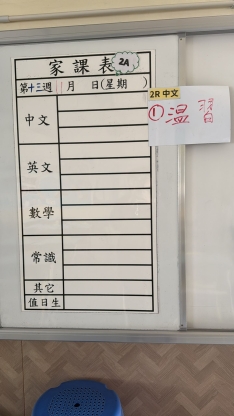 家課表 2A
第十三週 11月 日(星期 )
中文
英文
數學
常識
其它
值日生
2R 中文
①溫習